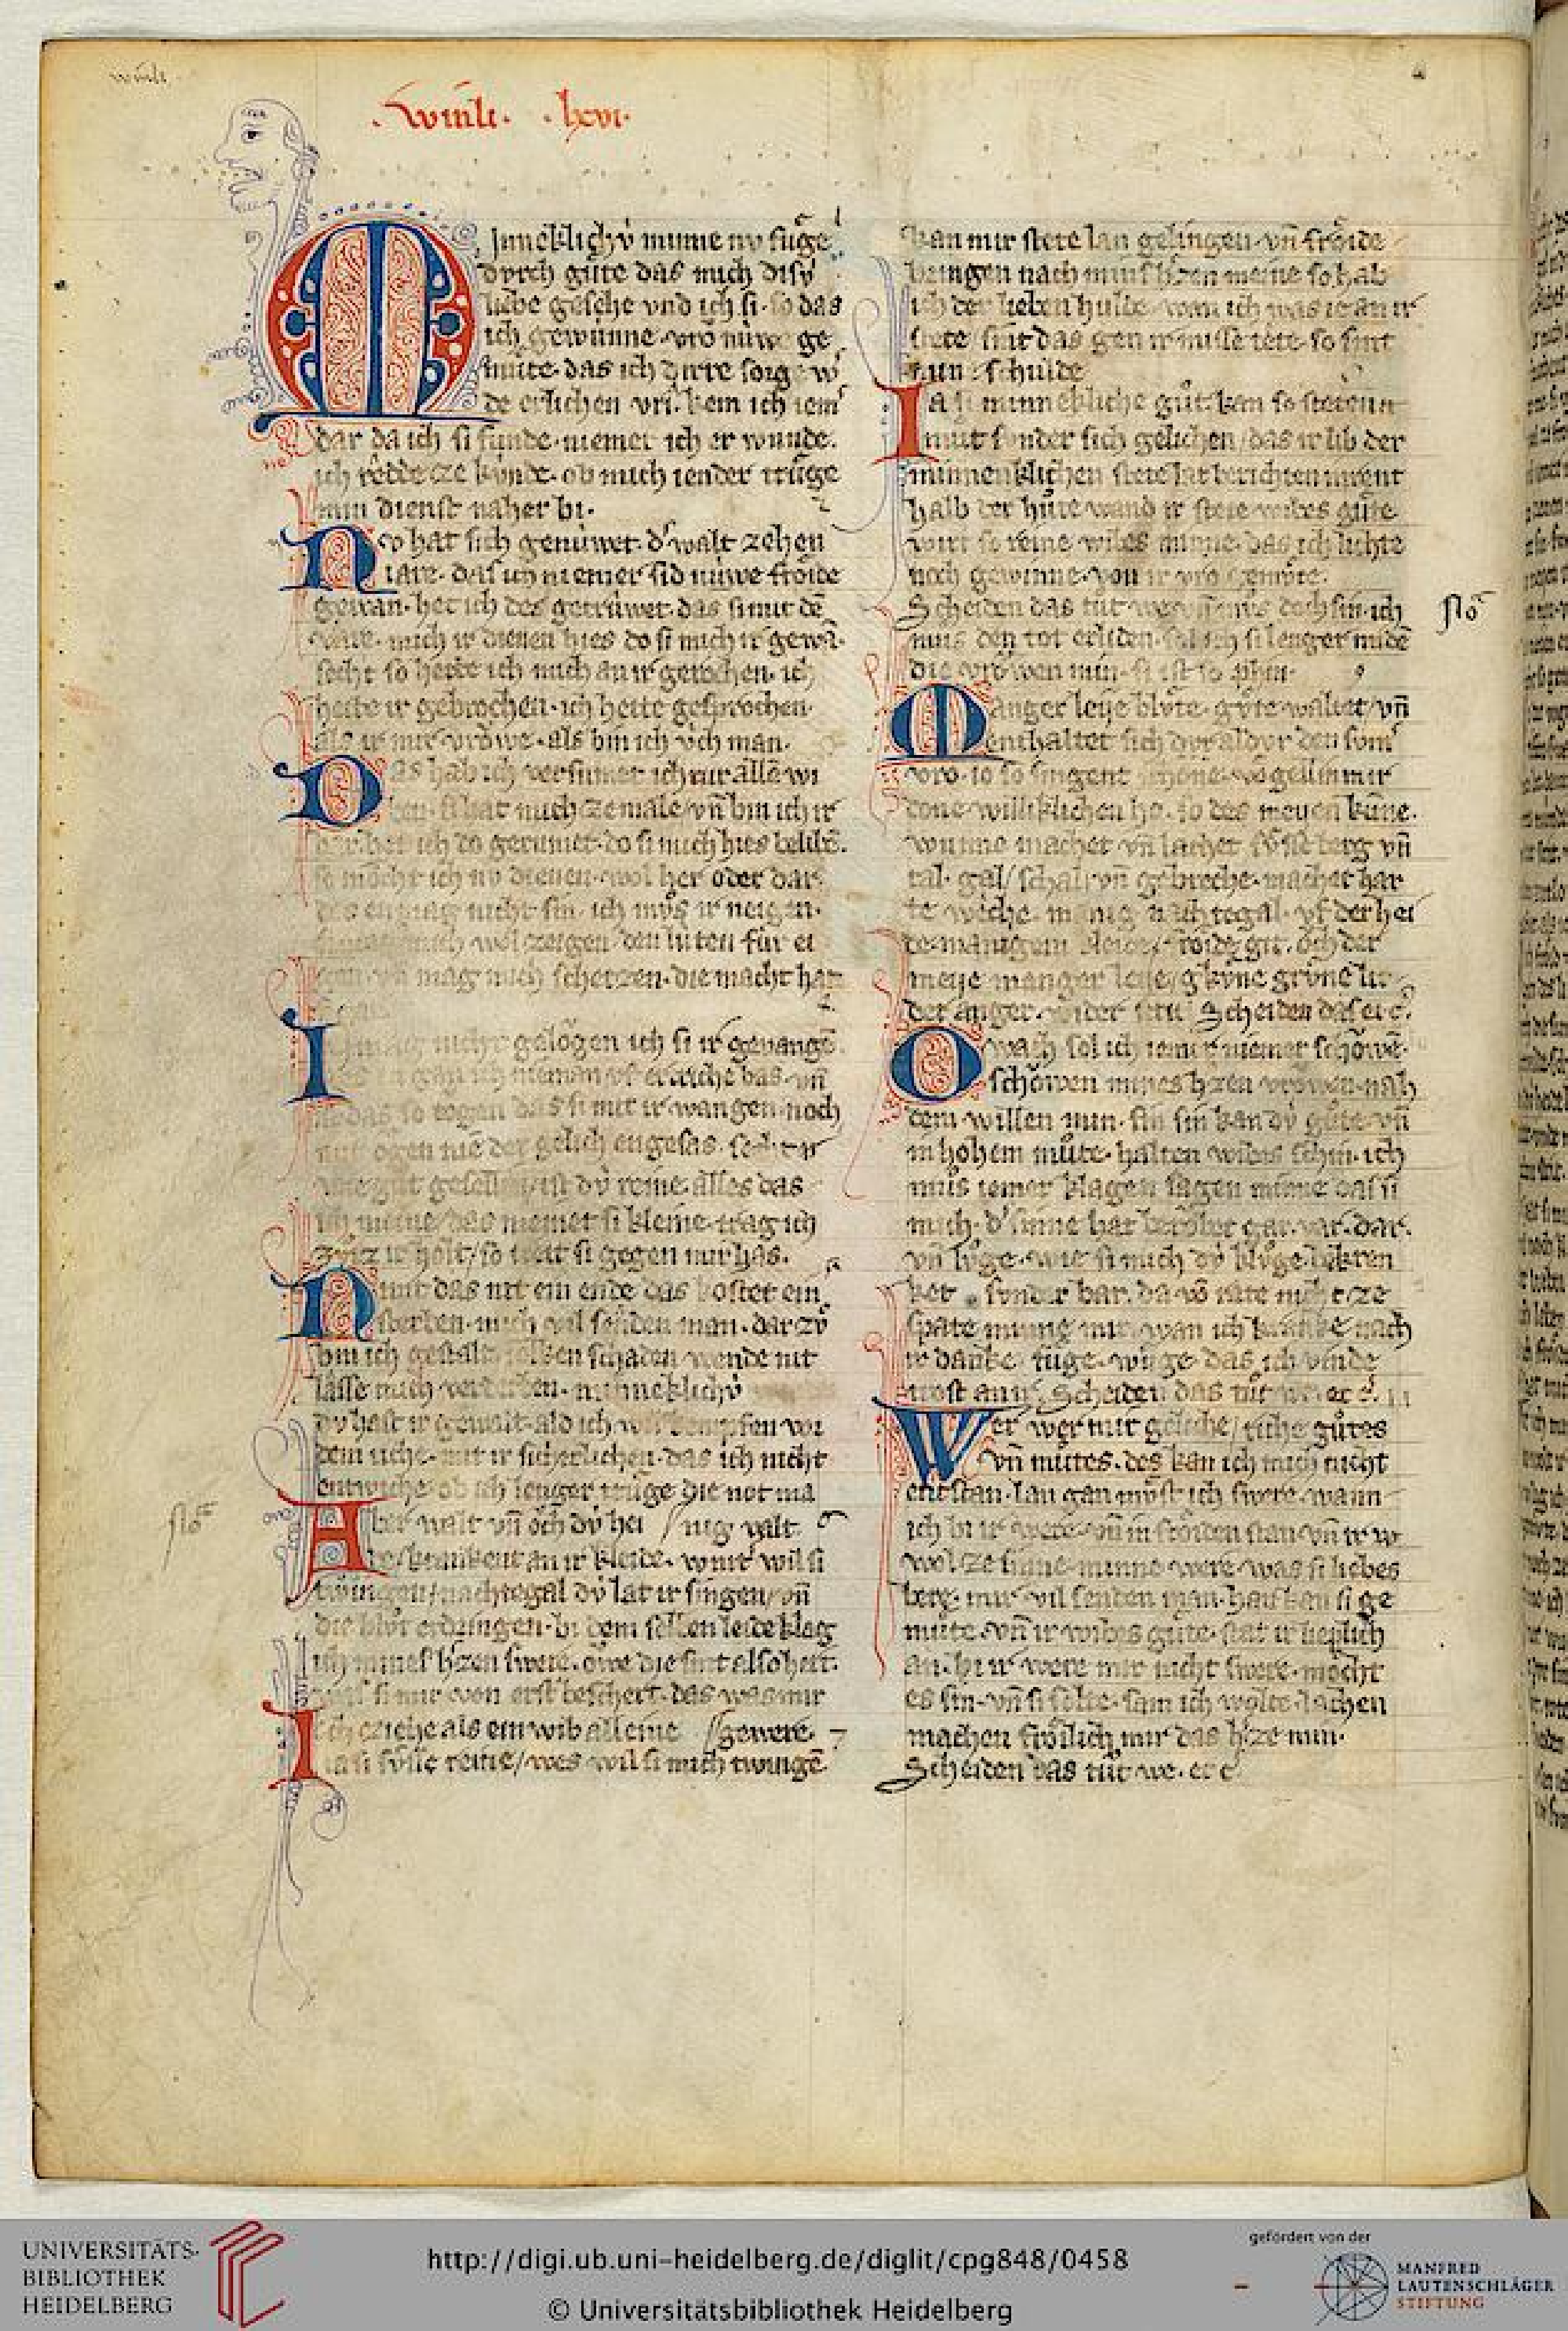 winli
·winli· ·lxvi·
Minneklichv́ minne nv fuͤge
dvrch guͤte das mich disv́
liebe gesehe vnd ich si· so das
ich gewinne· vro nuwe ge
muͤte· das ich dirre sorge w
de erlichen vri· kem ich iemˢ
dar da ich si funde· niemer ich er wunde·
ich redde cze kunde· ob mich iender truͤge
min dienst naher bi·
Nv hat sich genúwet· dˢ walt zehen
iare· das ich niemer sid núwe froide
gewan· het ich des getrúwet· das si mit dē
mich ir dienen hies do si mich ir gewā·
secht so hette ich mich an ir gerochen· ich
hette ir gebrochen· ich hette gesprochen·
als ir mir vrowe· als bin ich v́ch man·
Das hab ich versumet ich fur alle wi
ben· si hat mich ze male vn̄ bin ich ir
het ich do gerumet· do si mich hies belibē·
so moͤcht ich nv dienen· wol her oder dar·
des en mag nicht sin· ich muͦs ir neigen·
mich wol zeigen den luten fúr ei
gen· mag mich scherzen· die macht hat
I mag nicht geloͮgen ich si ir gevangē·
gan ich nieman vf ertriche bas· vn̄
das so togen das si mit ir wangen· noch
mit oͮgen nie der gelich engesas· secht
gesellen· ist dv́ reine· alles das
ich meine/ das niemet si kleine· trag ich
ir holt/ so treit si gegen mir has·
Nimt das nit ein ende das kostet ein
sterben· mich vil senden man· dar zvͦ
bin ich gestalt· schaden wende nit
lasse mich verderben· minneklichv́
dv hast ir gewalt· ald ich wil kempfen vor
dem riche· mit ir sicherlichen· das ich nicht
entwiche· ob ich lenger truͤge die not ma
Aber walt vn̄ oͮch dv́ hei //nig valt·
de/ krankent an ir kleide· wintˢ wil si
twingen/ nachtegal dv́ lat ir singen/ vn̄
die bluͦt erdringen· bi dem selben leide klag
ich mines hˢzen swere· owe die sint also hert·
si mir von erst beschert· das was mir
Ich ziehe als ein wib alleine //gewere·
ia si suͤsse reine/ wes wil si mich twingē
kan mir stete lan gelingen· vn̄ froͤide
bringen nach mins hˢzen meine so hab
ich der lieben hulde· wan ich was ie an ir
stete/ sint das gen ir misse tete· so sint
Ia si minnekliche guͦt/ kan so steten
mut sunder sich gelichen/ das ir lib der
minnenklichen stete hat
halb der huͦte wand ir stete wibes guͤte·
wirt so reine wibes minne· das ich lichte
noch gewinne· von ir vro gemuͤte·
Scheiden das tuͦt we· vn̄ muͦs doch sin· ich
mus den tot erliden· sol ich si lenger midē
die vrowen min· si ist so phin·
flōˢ
Manger leye bluͤte· guͤte waltet/ vn̄
enthaltet sich dvr al dvr den somˢ
vro· so so singent schone· vogellin mir
tone· williklichen ho· so des meyen kúne·
wunne machet vn̄ lachet suͤsse berg vn̄
tal· gal/ schal/ vn̄ gebreche· machet har
te weiche· manig nachtegal· vf der hei
de· manigem kleide/ froͤide git· oͮch der
meye manger leye/ gkuͤne gruͤne lit·
der anger· wider strit Scheiden das ec̄ c̄·
Owach sol ich iemer niemer schowē·
schowen mines hˢzen vrowen· nah
dem willen min· sin sin kan dv́ guͤte· vn̄
in hohem muͤte· halten wibes schin· ich
muͦs iemer klagen/ sagen minne das si
mich· dˢ sinne hat berobet gar· var· dar·
vn̄ luͦge· wie si mich dv́ kluͦge· bekren
ket sunder bar· da vō rate nicht/ ze
spate minne mir· wan ich kranke nach
ir danke/ fuͤge· wuͤge· das ich vinde
trost an ir/ Scheiden das tuͦt we· ec̄ c̄·
Wer wer mir geliche/ riche guͦtes
vn̄ muͦtes· des kan ich mich nicht
entstan· lan gan muͦst ich swere· wann
ich bi ir were· vn̄ in froͤiden stan· vn̄ ir
wol ze sinne· minne were· was si liebes
berg· mir vil senden man· han kan si ge
muͤte· vn̄ ir wibes guͤte· stat ir lieplich
an· bi ir were mir nicht swere· moͤcht
es sin· vn̄ si solte· sam ich wolte· lachen
machen froͤilich mir das hˢze min·
Scheiden das tuͦt we· ec̄ c̄
flōˢ
UNIVERSITÄTS-
BIBLIOTHEK
HEIDELBERG
http://digi.ub.uni-heidelberg.de/diglit/cpg848/0458
© Universitätsbibliothek Heidelberg
gefördert von der
MANFRED
LAUTENSCHLÄGER
STIFTUNG